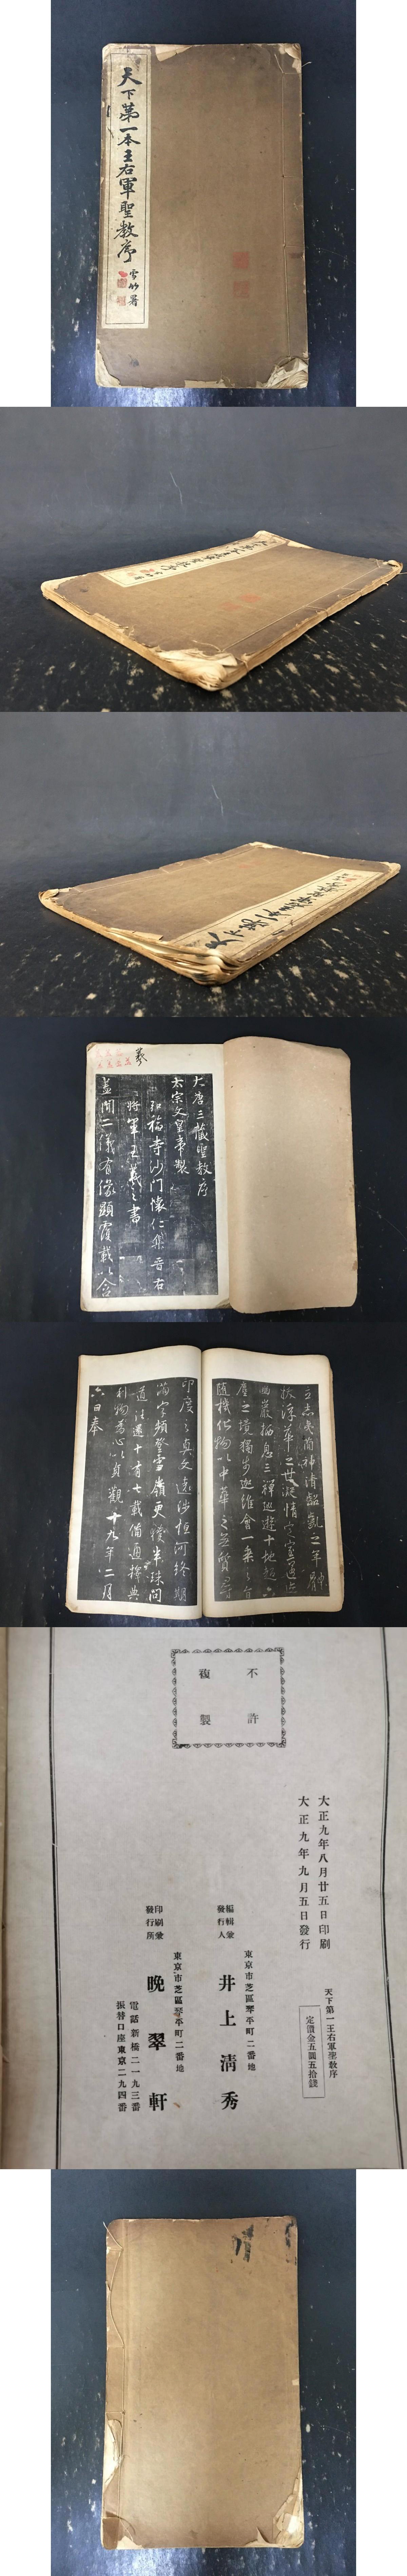 天下第一本王右軍聖教序
雪竹署
大唐三藏聖教序
太宗文皇帝製
弘福寺沙門懷仁集晉右
將軍王羲之書
蓋聞二儀有像顯覆載以含
立志夷簡神清齠齔之年體
拔浮華之世凝情定室匿迹
幽巖栖息三禪巡遊十地超六
塵之境獨步迦維會一乘之旨
隨機化物以中華之無質尋
印度之真文遠涉恒河終期
滿字頻登雪嶺更獲半珠問
道往還十有七載備通釋典
利物為心以貞觀十九年二月
六日奉
不許
複製
大正九年八月廿五日印刷
大正九年九月五日發行
天下第一王右軍聖教序
定價金五圓五拾錢
編輯兼
發行人
東京市芝區琴平町二番地
井上清秀
印刷兼
發行所
東京市芝區琴平町二番地
晩翠軒
電話新橋二一九三番
振替口座東京二九四番